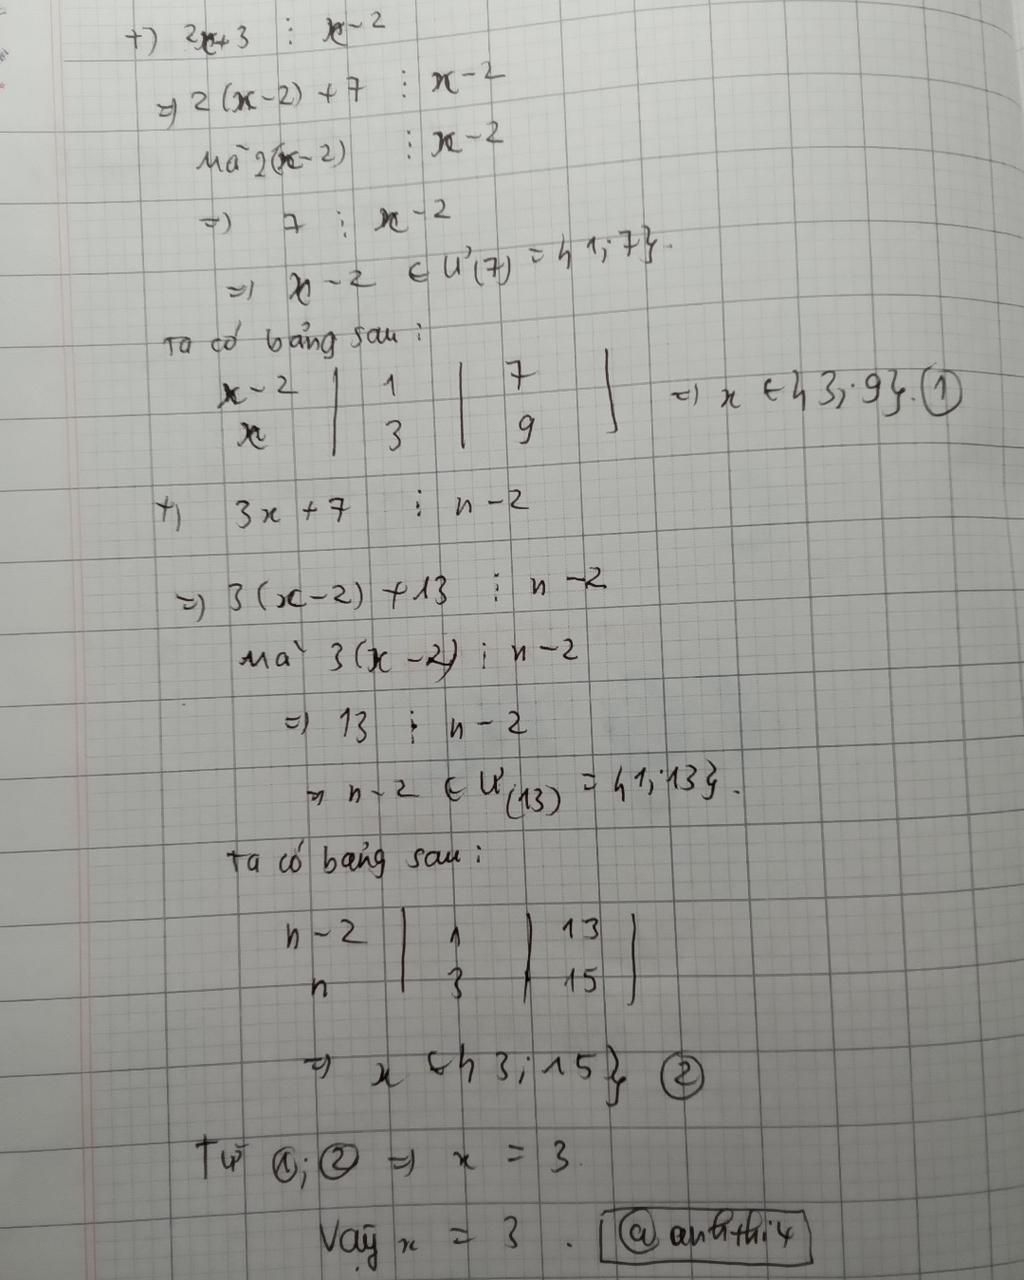 +) 2x+3 ⋮ x-2
=> 2(x-2) +7 ⋮ x-2
Mà 2(x-2) ⋮ x-2
=> 7 ⋮ x-2
=> x-2 ∈ Ư(7) = {1;7}.
Ta có bảng sau:
x-2 | 1 | 7 | => x ∈ {3;9}. ①
x | 3 | 9
+) 3x+7 ⋮ n-2
=> 3(x-2) +13 ⋮ n-2
Mà 3(x-2) ⋮ n-2
=> 13 ⋮ n-2
=> n-2 ∈ Ư(13) = {1;13}.
Ta có bảng sau:
n-2 | 1 | 13 |
n | 3 | 15
=> x ∈ {3;15} ②
Từ ①;② => x = 3.
Vậy x = 3. @anhthi4